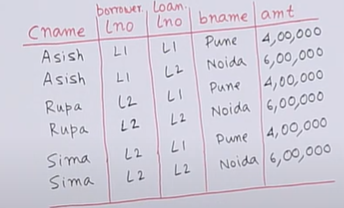 Cname borrower. Lno loan. Lno bname amt
Asish L1 L1 Pune 4,00,000
Asish L1 L2 Noida 6,00,000
Rupa L2 L1 Pune 4,00,000
Rupa L2 L2 Noida 6,00,000
Sima L2 L1 Pune 4,00,000
Sima L2 L2 Noida 6,00,000